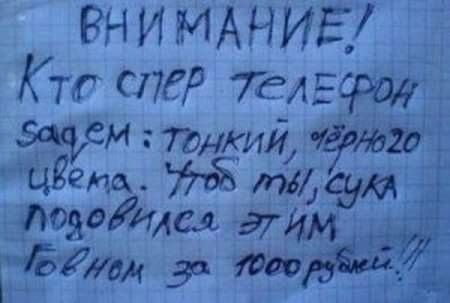 ВНИМАНИЕ!
Кто спер телефон
sagем: тонкий, чёрного
цвета. Чтоб ты, сука
подовился этим
Говном за 1000 рублей!!!